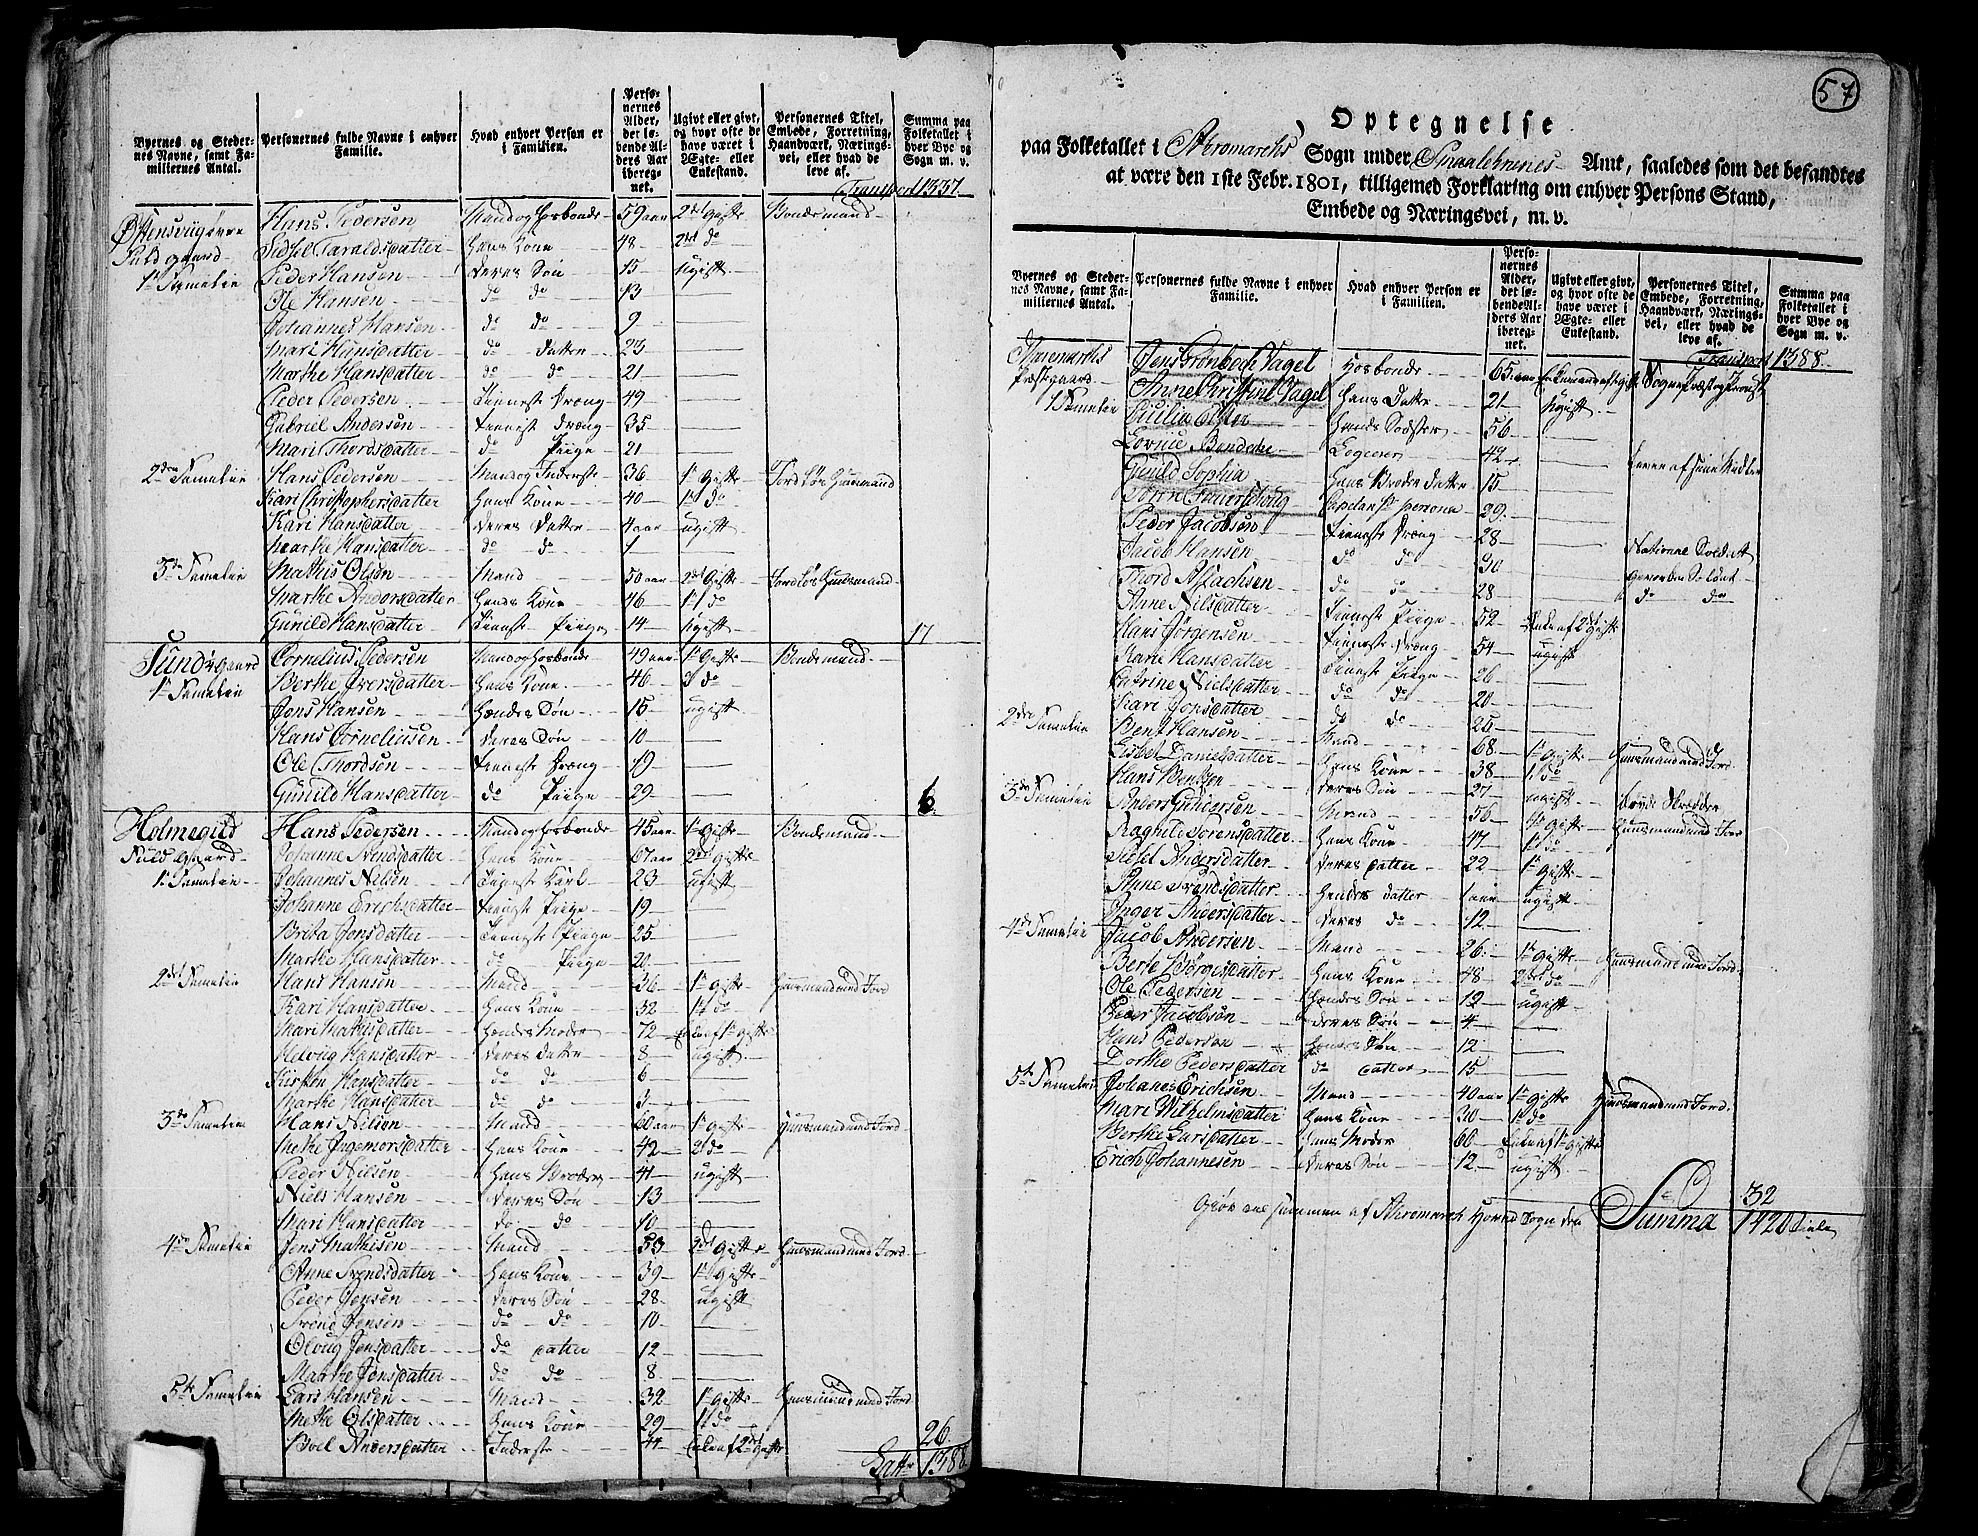 Byernes og Stedernes Navne, samt Familiernes Antal.
Personernes fulde Navne i enhver Familie.
Hvad enhver Person er i Familien.
Personernes Alder, det løbende Alders Aar iberegnet.
Ugivt eller givt, og hvor ofte de have været i Ægte- eller Enkestand.
Personernes Titel, Embede, Forretning, Haandværk, Næringsvei, eller hvad de leve af.
Summa paa Folketallet i hver Bye og Sogn m. v.
Transport 1337
Hans Pedersen Mand og Hosbonde 59 aar 2det Gifte Bondemand
Fuldgaard Sidsel Taraldsdatter Hans Kone 48 2det do
1te Familie Peder Hansen deres Søn 15 ugift
Ole Hansen do do 13
Johannes Hansen do do 9
Mari Hansdatter do datter 23
Marthe Hansdatter do do 21
Peder Pedersen Tieneste Dreng 49
Gabriel Andersen tieneste Dreng 35
Mari Thordsdatter do Piige 21
2den Familie Hans Pedersen Mand og Inderste 36 1te Gifte Jordløs Huusmand
Kari Christophersdatter Hans Kone 40 1te do
Kari Hansdatter deres datter 4 aar ugift
Marthe Hansdatter do do 1
3de Familie Mathis Olsen Mand 50 aar 2det Gifte Jordløs Huusmand
Marthe Andersdatter Hands Kone 46 1te do
Gunild Hansdatter Tieneste Piige 14 ugift 17
Sundbygaard Cornelius Pedersen Mand og Hosbonde 49 aar 1te Gifte Bondemand
1te Familie Berthe Iversdatter Hans Kone 46 do
Jens Hansen Hendes Søn 15 ugift
Hans Corneliusen deres Søn 10
Ole Thordsen tieneste Dreng 19
Gunild Hansdatter do Piige 29 6
Holmegild Hans Pedersen Mand og Hosbonde 45 aar 1te Gifte Bondemand
Fuld Gaard Johanne Svendsdatter Hans Kone 67 aar 2det Gifte
1te Familie Johannes Nilsen Tieneste Karl 23 ugift
Johanne Erichsdatter tieneste Piige 19
Brita Jonsdatter Tieneste Piige 25
Marthe Hansdatter do Piige 20
2det Familie Hans Hansen Mand 36 1te Gifte Huusmand med Jord
Kari Hansdatter Hans Kone 32 1te do
Mari Mathisdatter Hendes Moder 72 Enke af 1te Gifte
Helvig Hansdatter deres datter 8 ugift
Kirsten Hansdatter do do 6
Marthe Hansdatter do do 3
3de Familie Hans Nilsen Mand 60 aar 1te Gifte Huusmand med Jord
Methe Ingemorsdatter Hans Kone 42 do
Peder Nilsen Hans Broder 41 ugift
Niels Hansen deres Søn 13
Mari Hansdatter do do 10
4de Familie Jens Mathisen Mand 53 2det Gifte Huusmand med Jord
Anne Svendsdatter Hans Kone 39 1te Gifte
Peder Jensen deres Søn 28 ugift
Svend Jensen do do 10
Oloug Jensdatter do datter 12
Marthe Jensdatter do do 8
5te Familie Lars Hansen Mand 32 1te Gifte Huusmand med Jord
Methe Olsdatter Hans Kone 29 1te do
Boel Andersdatter Inderste 44 Enke af 2det Gifte 26
Latr 1388
57
Optegnelse
paa Folketallet i Aremarchs Sogn under Smaalehnenes Amt, saaledes som det befandtes
at være den 1ste Febr. 1801, tilligemed Forklaring om enhver Persons Stand,
Embede og Næringsvei, m. v.
Byernes og Stedernes Navne, samt Familiernes Antal.
Personernes fulde Navne i enhver Familie.
Hvad enhver Person er i Familien.
Personernes Alder, det løbende Alders Aar iberegnet.
Ugivt eller givt, og hvor ofte de have været i Ægte- eller Enkestand.
Personernes Titel, Embede, Forretning, Haandværk, Næringsvei, eller hvad de leve af.
Summa paa Folketallet i hver Bye og Sogn m. v.
Transport 1388
Aremarchs Jens Grønbech Vagel Hosbonde 65 aar Sogne Præst og Provst
Præstgaard Anne Christine Vagel Hans Datter 21 ugift
1 Familie Hands Sødster 56
Logerer 42
Gunild Sophia Hans Broder datter 15
Capelan 29
Peder Jacobsen tieneste Dreng 28 National Soldat
Jacob Hansen do do
Thord Aslachsen do do 28 do do
Anne Nilsdatter Tieneste Piige 52 Enke af 2det Gifte
Hans Jørgensen tieneste Dreng 54 ugift
Kari Hansdatter Tieneste Piige 26
Catrine Nielsdatter do do 20
Kari Jonsdatter do do 25
2den Familie Bent Hansen Mand 68 1te Gifte Huusmand med Jord
Lisbet Danielsdatter Hans Kone 38 1te do
Hans Bentsen deres Søn 27 ugift
3de Familie Anders Gundersen Mand 56 Gifte Huusmand med Jord
Ragnild Sørensdatter Hans Kone 47 1te do
Sidsel Andersdatter deres datter 22 1te Gifte
Anne Svendsdatter Hendes datter 1 aar ugift
Inger Andersdatter deres do 12
4de Familie Jacob Andersen Mand 26 1te Gifte Huusmand med Jord
Berte Børgesdatter Hans Kone 48 2det do
Ole Pedersen Hendes Søn 12 ugift
Peder Jacobsen deres Søn 4
Hans Pedersen Hendes Søn 12
Dorthe Pedersdatter do datter 15
5te Familie Johanes Erichsen Mand 40 aar 1te Gifte Huusmand med Jord
Mari Wilhelmsdatter Hans Kone 30 1te do
Berthe Larsdatter Hans Moder 60 Enke af 1te Gifte
Erich Johannesen deres Søn 12 ugift
32
Giør ene summen af Aremarch Hoved Sogn den Summa 1420 Siele